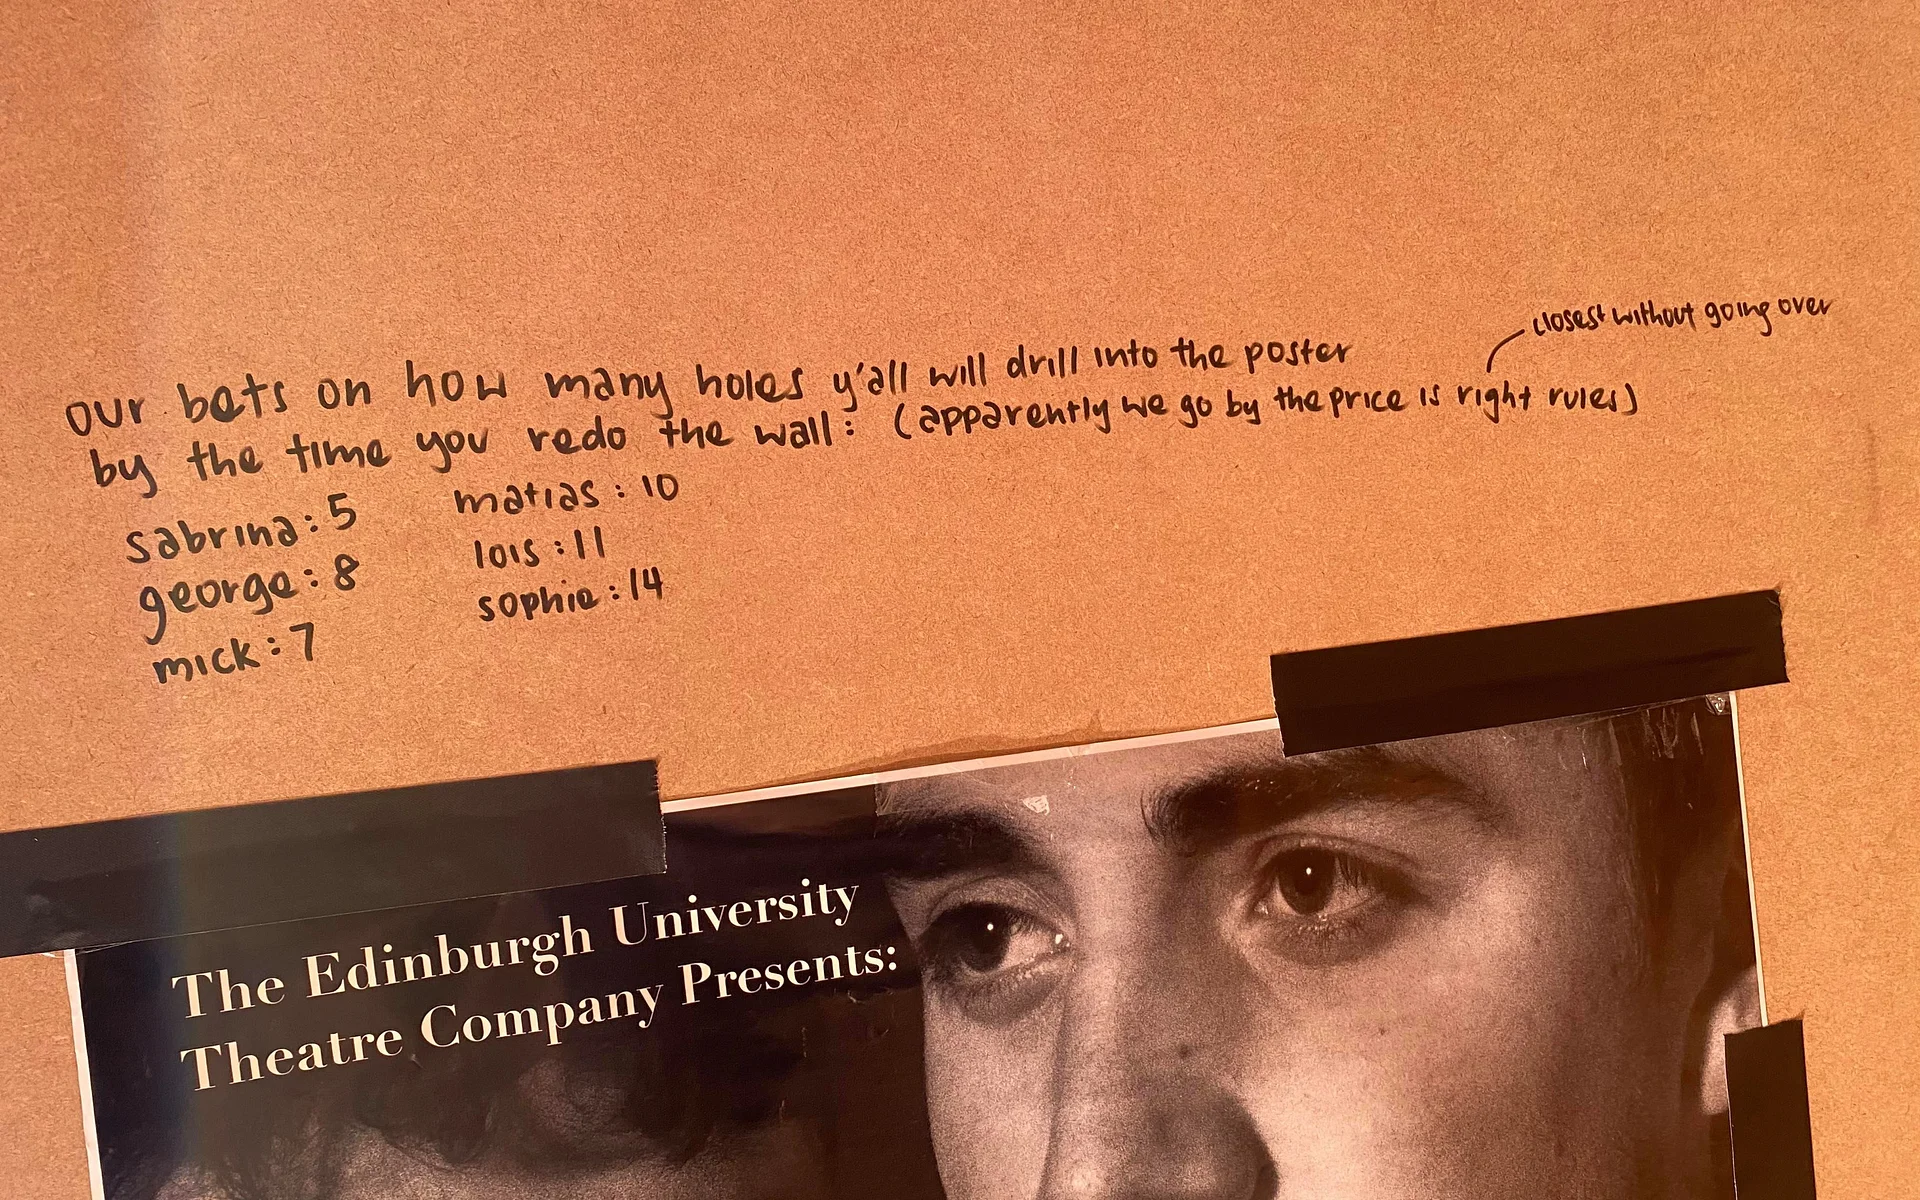 closest without going over
our bets on how many holes y'all will drill into the poster
by the time you redo the wall: (apparently we go by the price is right rules)
sabrina: 5
george: 8
mick: 7
matias: 10
lois: 11
sophie: 14
The Edinburgh University
Theatre Company Presents: